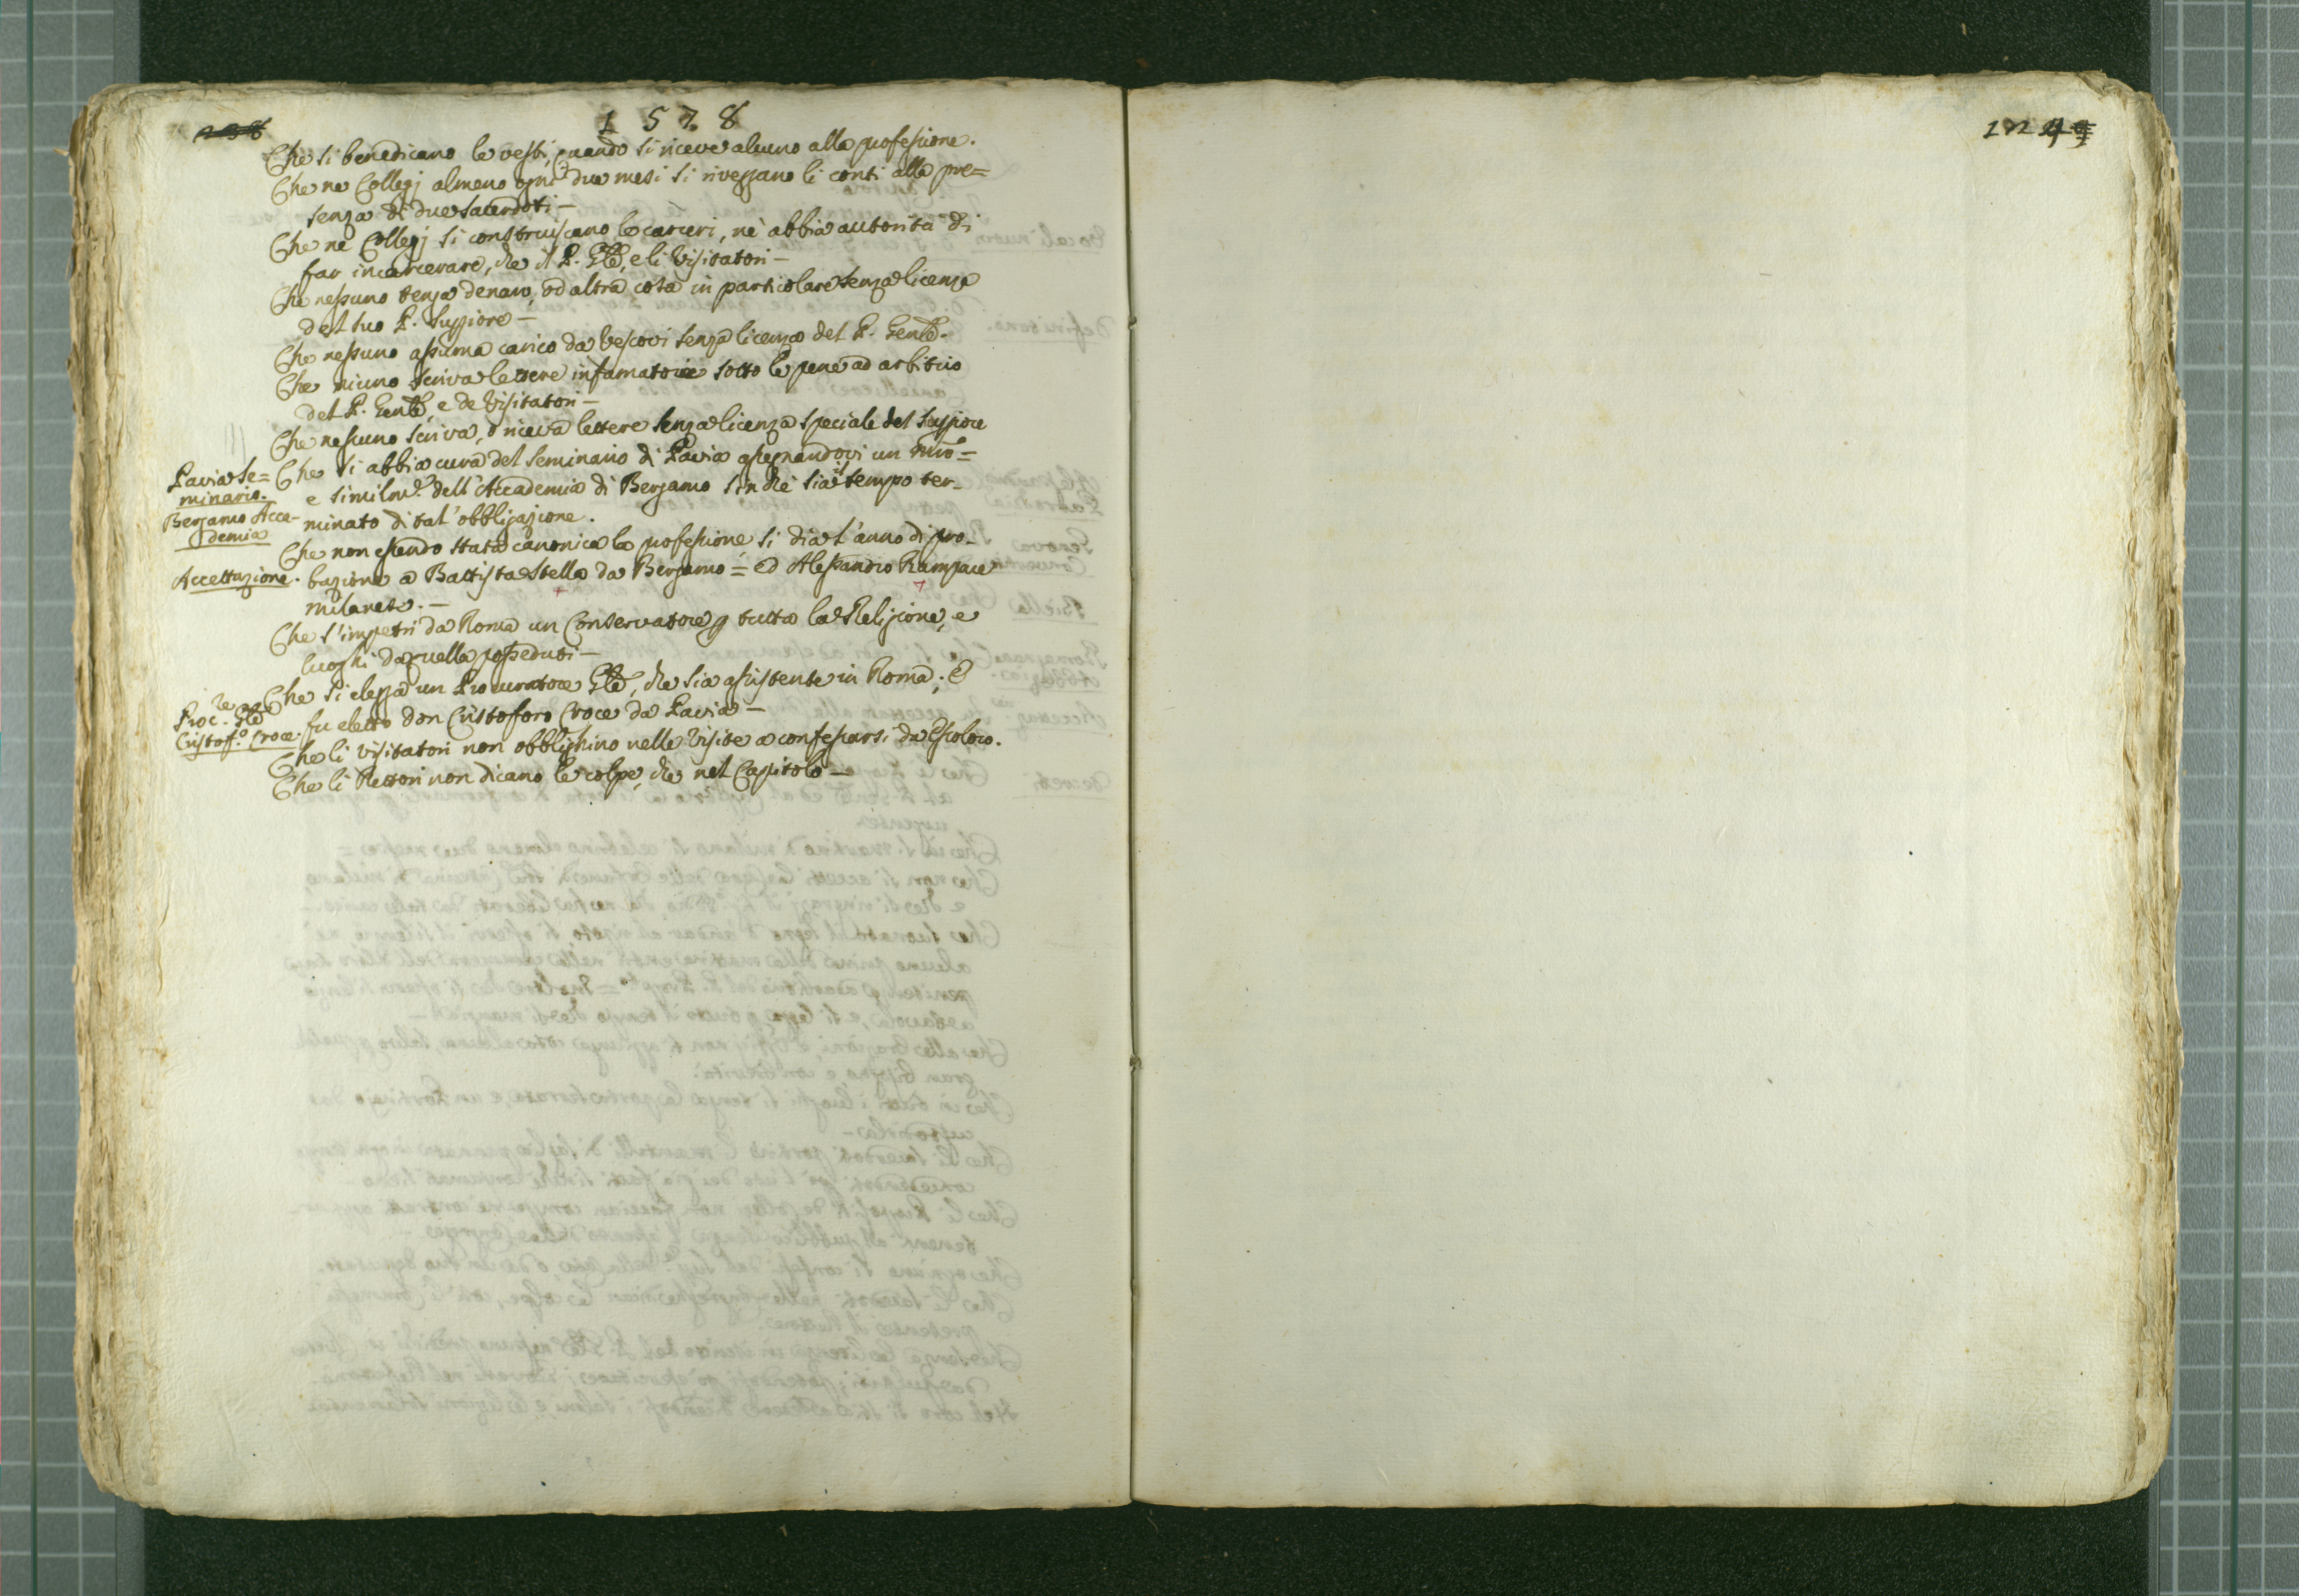 1578
Che si benedicano le vesti, quando si riceve alcuno alla professione.
Che ne Collegj almeno ogni due mesi si riveggano li conti alla pre=
senza di due sacerdoti –
Che ne Collegj si construiscano le carceri, nè abbia autorità di
far incarcerare, che il P. Gñle, e li Visitatori –
Che nessuno tenga denaro, od altra cosa in particolare senza licenza
del suo P. Suppiore –
Che nessuno assuma carico da Vescovi senza licenza del P. Genle.
Che niuno scriva lettere infamatorie sotto le pene ad arbitrio
del P. Genle, e de Visitatori –
Che nessuno scriva, o riceva lettere senza licenza speciale del Suppiore
Pavia Se=
minario.
Che si abbia cura del Seminario di Pavia assegnandovi un mro=
e similmte. dell'Accademia di Bergamo sin che sia il tempo ter-
Bergamo Acca-
demia
minato di tal' obbligazione.
Che non essendo stata canonica la professione si dia l'anno di pro-
Accettazione.
bazione a Battista Stella da Bergamo = ed Alessandro
milanese. –
Che s'impetri da Roma un Conservatore p tutta la Religione, e
luoghi da quella posseduti –
Che si elegga un Procuratore Gñle, che sia assistente in Roma; E
Proc.re Gñle
Cristof.o Croce.
fu eletto don Cristoforo Croce da Pavia –
Che li Visitatori non obblighino nelle Visite a confessarsi da essoloro.
Che li Rettori non dicano le colpe, che nel Capitolo –